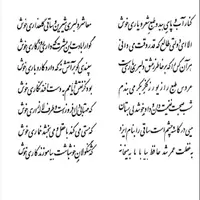 کنار آب و پای بید و طبع شعر و یاری خوش معاشر دلبری شیرین و ساقی گلعذاری خوش
الا ای دولتی طالع که قدر وقت می دانی گوارا بادت این عشرت که داری روزگاری خوش
هر آن کس را که بر خاطر ز عشق دلبری باریست سپندی گو بر آتش نه که داری کار و باری خوش
عروس طبع را زیور ز فکر بکر می بندم بود کز نقش ایامم به دست افتد نگاری خوش
شب صحبت غنیمت دان و داد خوشدلی بستان که مهتابی دل افروزست و طرف لاله زاری خوش
میی در کاسه چشم است ساقی را بنام ایزد که مستی می کند با عقل و می بخشد خماری خوش
به غفلت عمر شد حافظ بیا با ما به میخانه که شنگولان خوش باشت بیاموزند کاری خوش